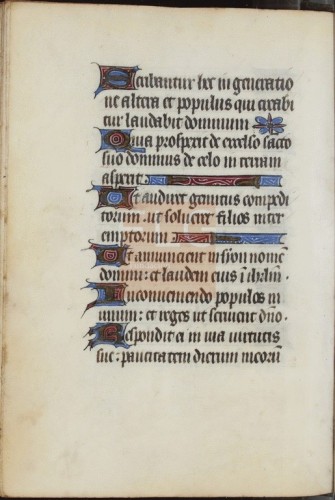 Scribantur hec in generatio
ne altera et populus qui creabi
tur laudabit dominum
Quia prosperit de excelso sancto
suo dominus de celo in terram
asperit
Ut audiret gemitus compedi
torum ut solueret filios inter
emptorum
Ut annuncient in sion nomē
domini: et laudem eius ī ihrlm.
In conueniendo populos in
unum: et reges ut seruient dn̄o.
Respondit ei in uia uirtutis
sue: paucitatem dierum meorū